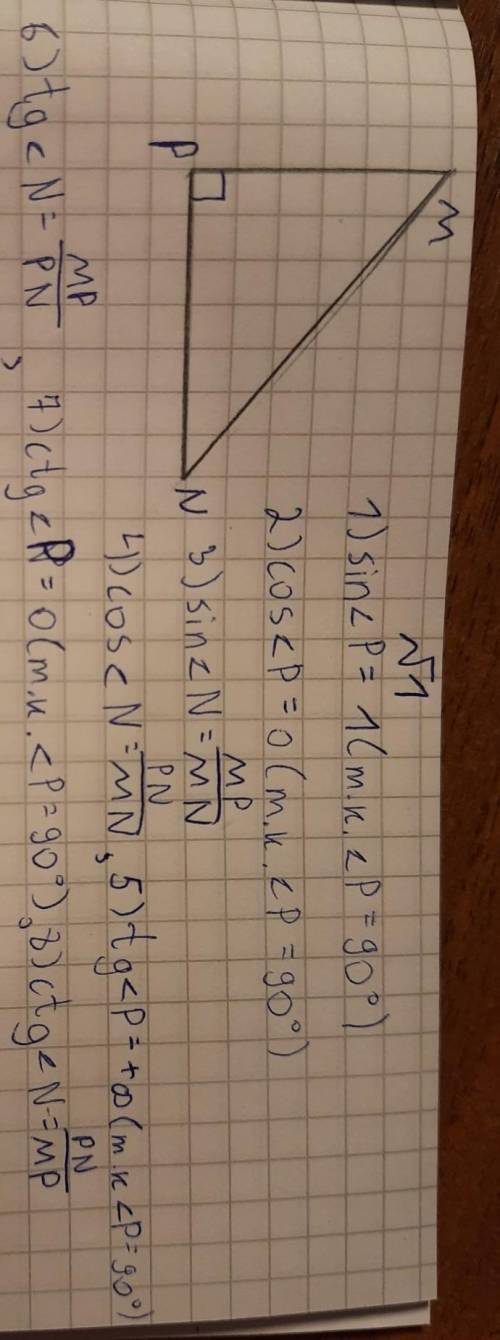 √1
M
P
N
1) sin < P = 1 (т.к. < P = 90°)
2) cos < P = 0 (т.к. < P = 90°)
3) sin < N = MP/MN
4) cos < N = PN/MN, 5) tg < P = +∞ (т.к < P = 90°)
6) tg < N = MP/PN, 7) ctg < P = 0 (т.к. < P = 90°), 8) ctg < N = PN/MP